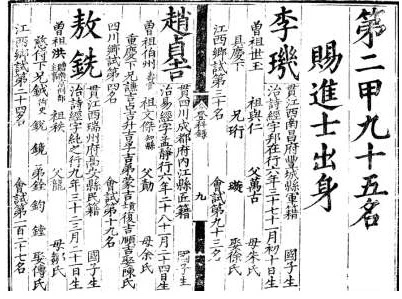 第二甲九十五名
賜進士出身
李璣
貫江西南昌府豐城縣軍籍 國子生
治詩經字邦在行八年三十七十一月初十日生
曾祖世王 祖與仁 父萬古 母朱氏
具慶下 兄珩 璇 娶徐氏
江西鄉試第三十名 會試第九十三名
登科錄
九
趙貞吉
貫四川成都府內江縣匠籍 國子生
治易經字孟靜行六年二十八十一月二十四日生
曾祖伯州 祖文傑 父勣 母余氏
重慶下 兄謙吉 弟蒙吉 復吉 順吉 娶陳氏
四川鄉試第四名 會試第十九名
敖銑
貫江西瑞州府高安縣民籍 國子生
治詩經字純之行九年三十三月二十一日生
曾祖洪 祖秩 父龍 母鄒氏
慈侍下 兄鉞 銳 鏡 弟銓 鈞 鍠 娶傅氏
江西鄉試第二十四名 會試第一百二十七名